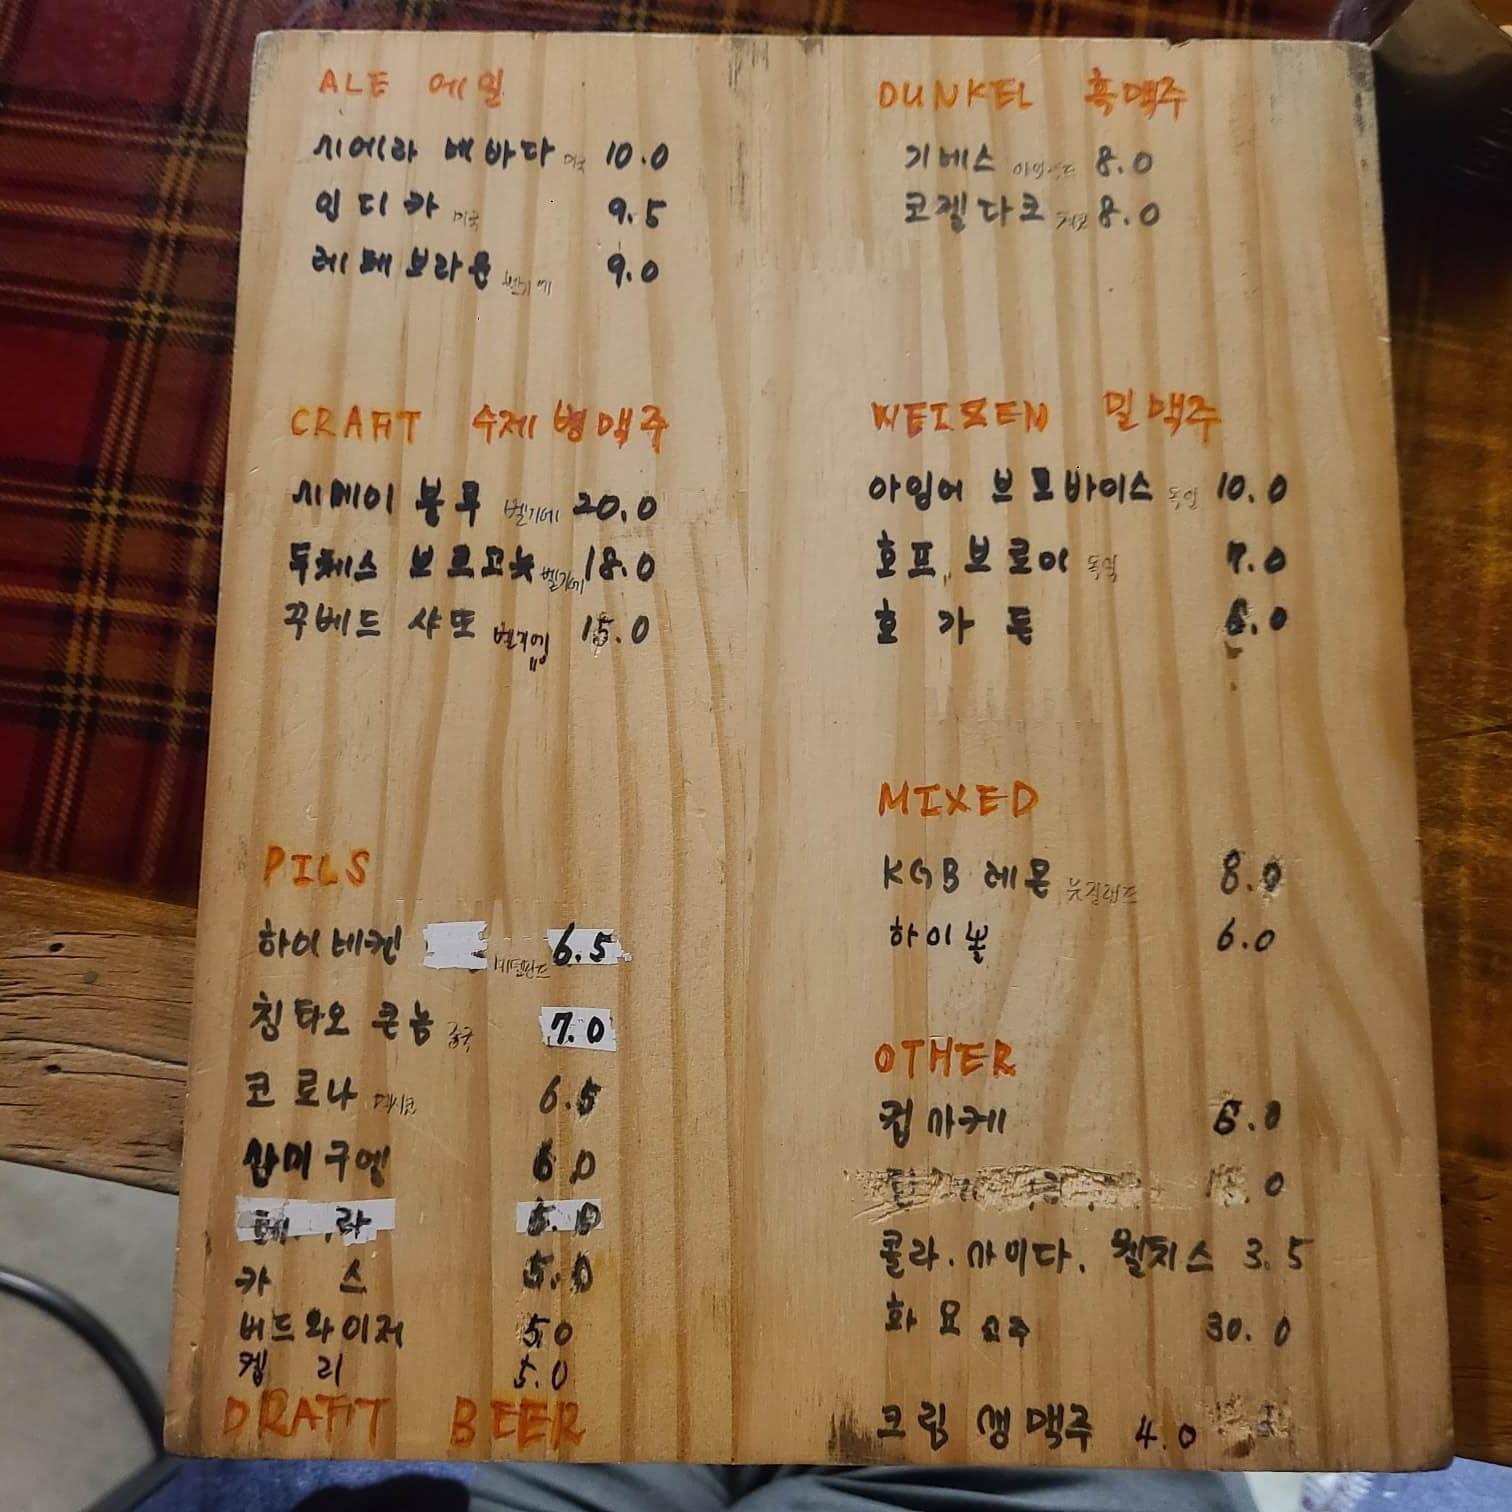 ALE 에일
시에라 네바다 미국 10.0
인디카 미국 9.5
레페브라운 벨기에 9.0
CRAFT 수제병맥주
시메이 블루 벨기에 20.0
두체스 보르고뉴 벨기에 18.0
꾸베드 샤또 벨기에 15.0
PILS
하이네켄 네덜란드 6.5
칭타오 큰놈 중국 7.0
코로나 멕시코 6.5
산미구엘 6.0
테라 5.0
카스 5.0
버드와이저 5.0
켈리 5.0
DRAFT BEER
DUNKEL 흑맥주
기네스 아일랜드 8.0
코젤다크 체코 8.0
WEIZEN 밀맥주
아잉어 브로바이스 독일 10.0
호프 브로이 독일 7.0
호가든 6.0
MIXED
KGB 레몬 뉴질랜드 8.0
하이볼 6.0
OTHER
컵사케 6.0
콜라. 사이다. 웰치스 3.5
화요소주 30.0
크림 생맥주 4.0